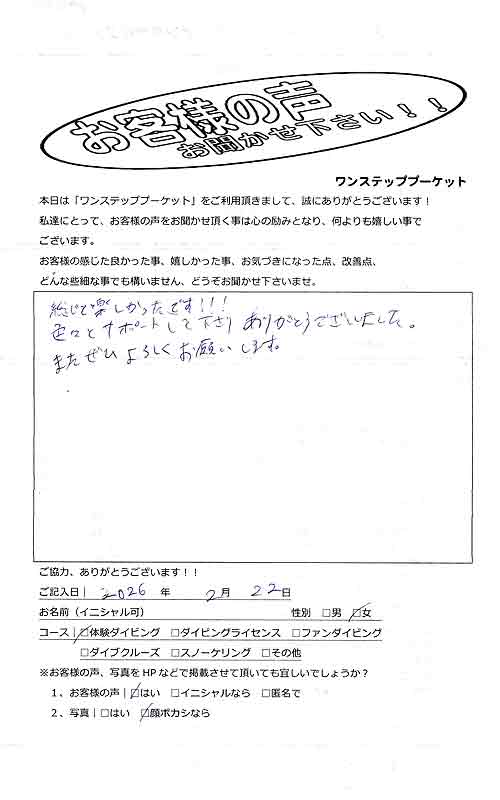 お客様の声
お聞かせ下さい！！
ワンステッププーケット
本日は「ワンステッププーケット」をご利用頂きまして、誠にありがとうございます！
私達にとって、お客様の声をお聞かせ頂く事は心の励みとなり、何よりも嬉しい事で
ございます。
お客様の感じた良かった事、嬉しかった事、お気づきになった点、改善点、
どんな些細な事でも構いません、どうぞお聞かせ下さいませ。
総じて楽しかったです!!!
色々とサポートして下さり ありがとうございました。
またぜひ よろしくお願いします。
ご協力、ありがとうございます！！
ご記入日| 2026 年 2月 22日
お名前（イニシャル可） 性別 □男 ☑女
コース| ☑体験ダイビング □ダイビングライセンス □ファンダイビング
□ダイブクルーズ □スノーケリング □その他
※お客様の声、写真をHPなどで掲載させて頂いても宜しいでしょうか？
１、お客様の声| ☑はい □イニシャルなら □匿名で
２、写真| □はい ☑顔ボカシなら